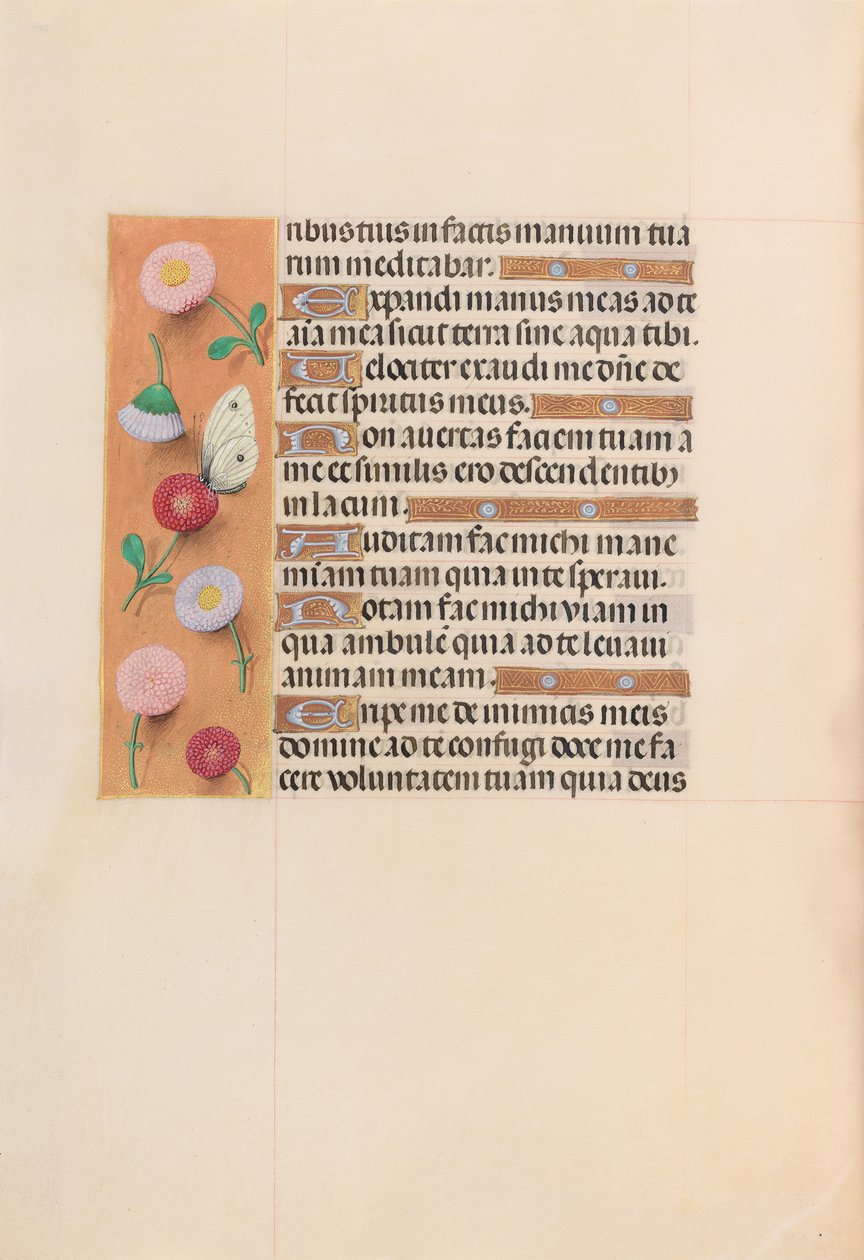 ribus tuis in factis manuum tua
rum meditabar.
Expandi manus meas ad te
aĩa mea sicut terra sine aqua tibi.
Uelociter exaudi me dñe de
fecit spiritus meus.
Non auertas faciem tuam a
me et similis ero descendentibꝰ
in lacum.
Auditam fac michi mane
mĩam tuam quia in te speraui.
Notam fac michi viam in
qua ambulẽ quia ad te leuaui
animam meam.
Eripe me de inimicis meis
domine ad te confugi doce me fa
cere voluntatem tuam quia deus